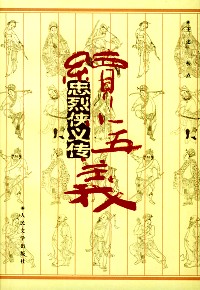 續小五義
忠烈侠义传
人民文学出版社